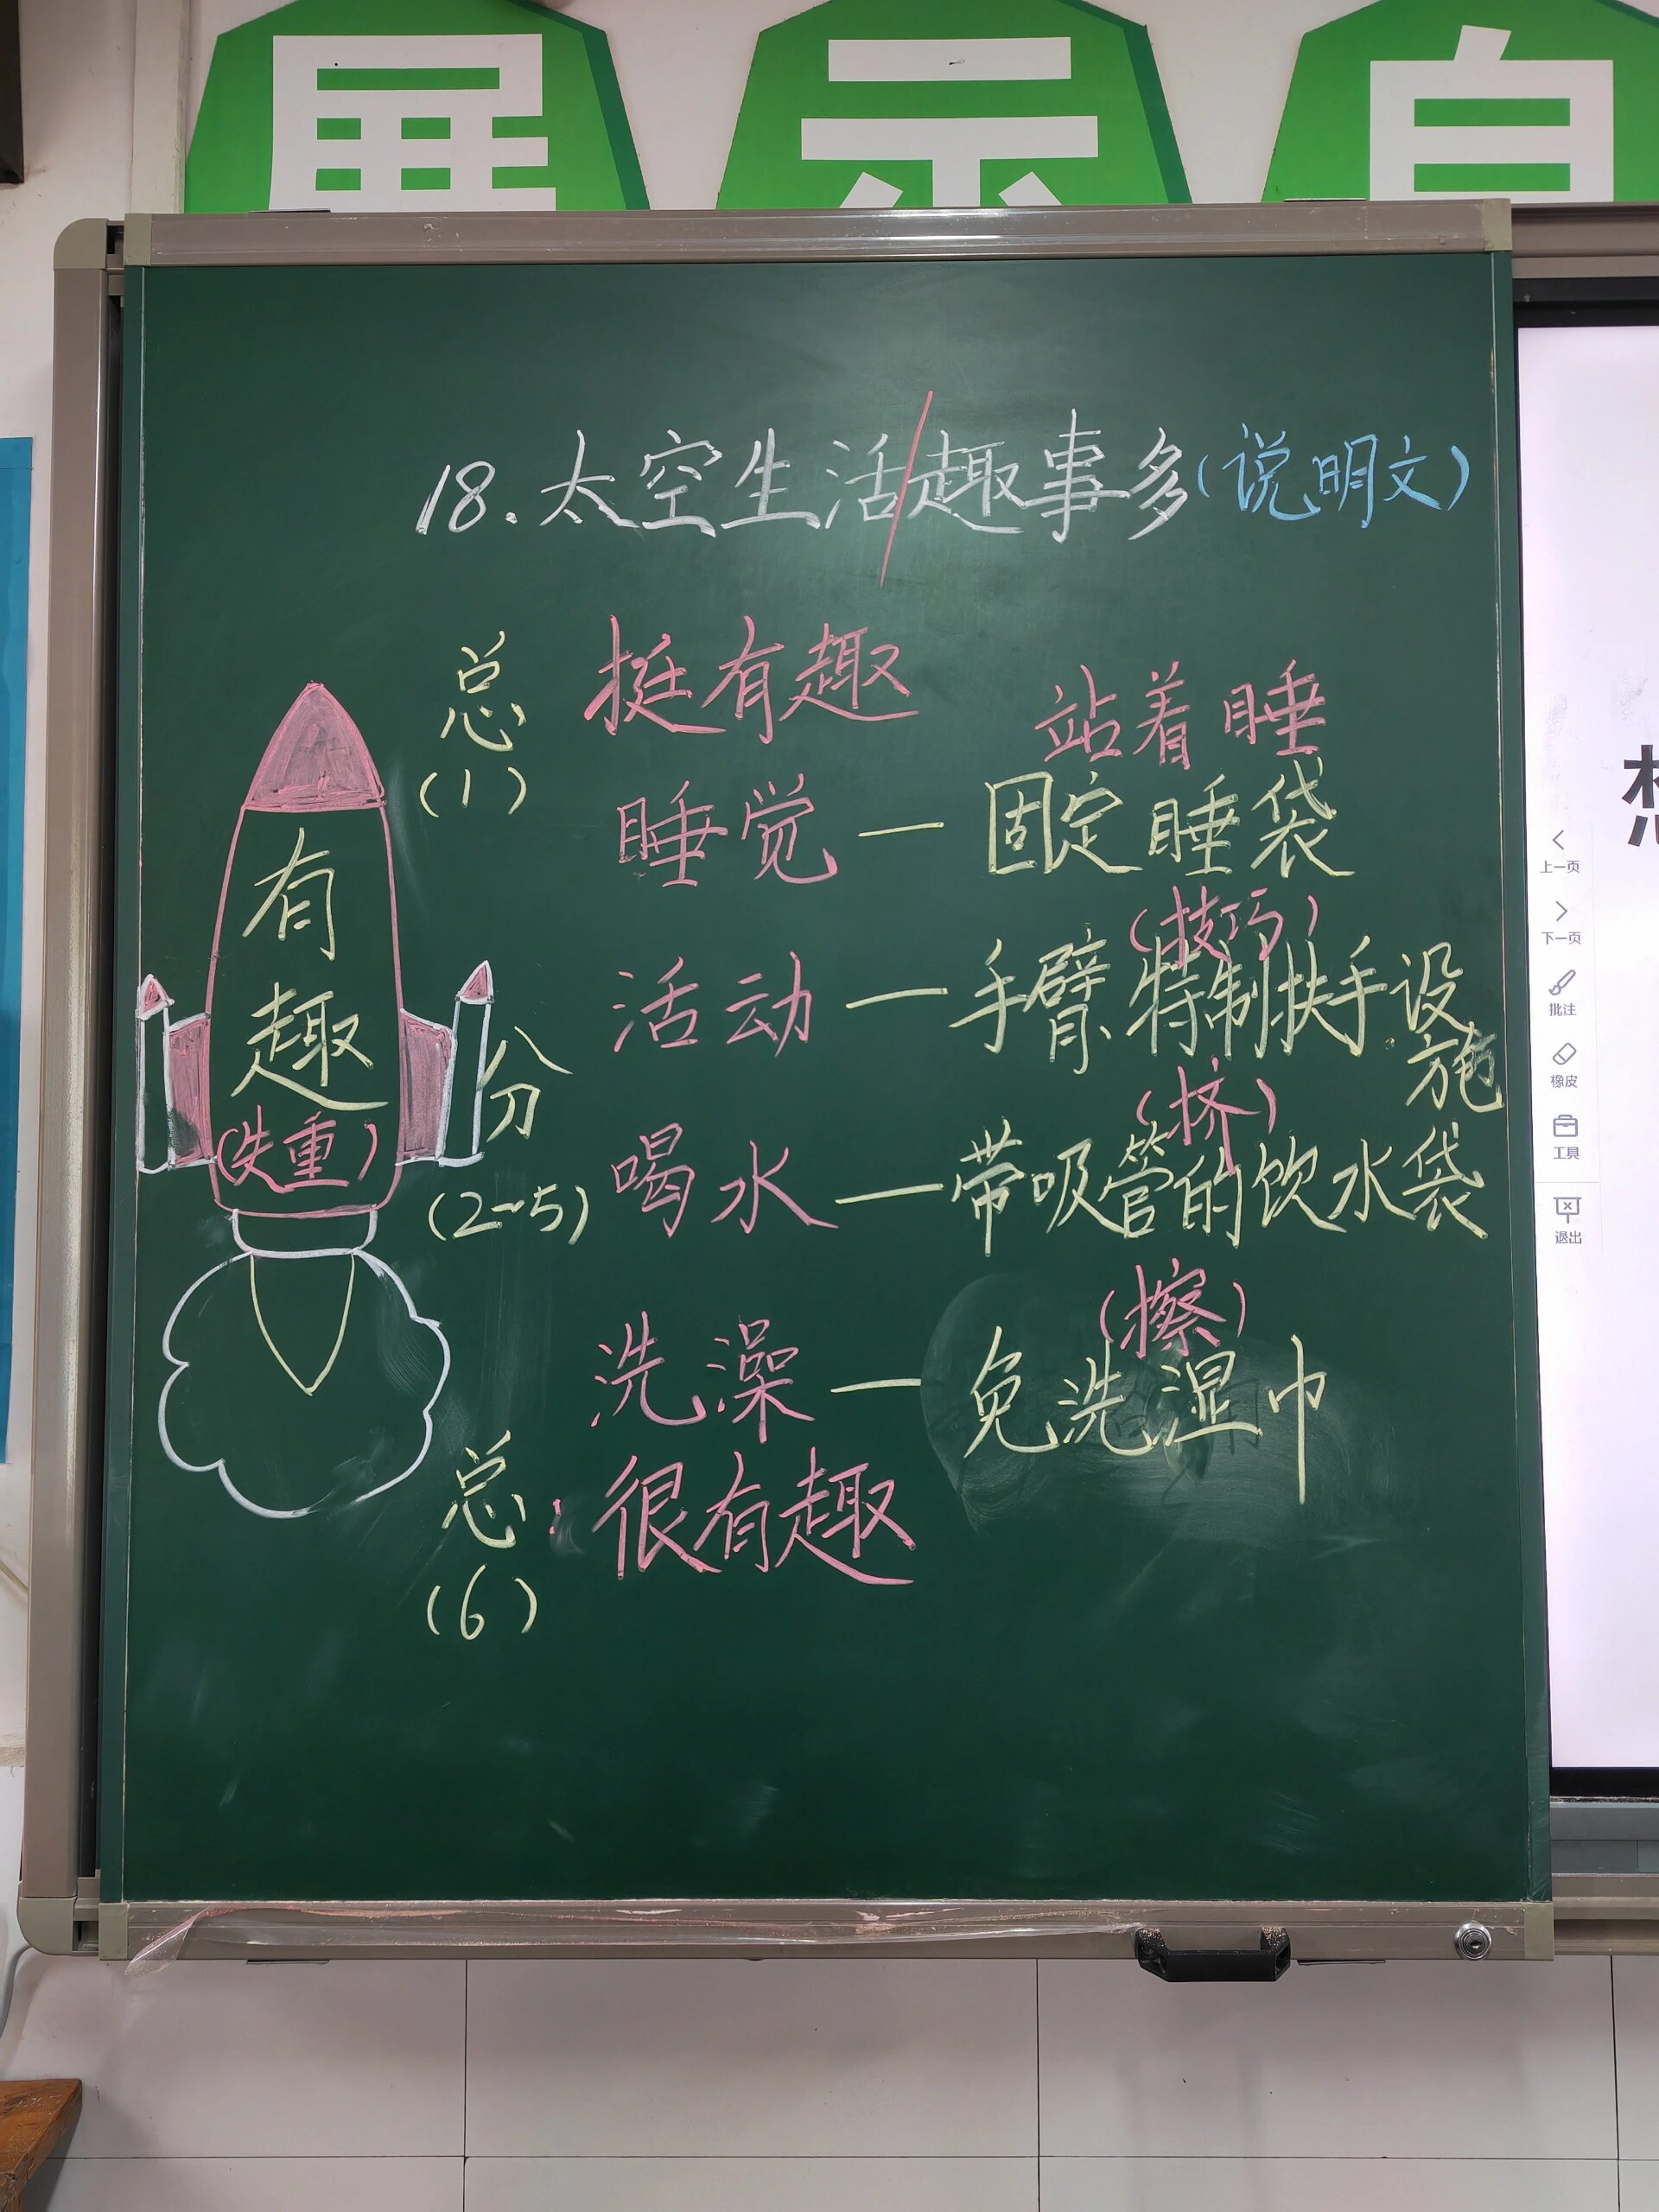 展示自
18.太空生活/趣事多(说明文)
总
(1)
挺有趣
站着睡
睡觉—固定睡袋
有趣
(失重)
(技巧)
活动—手臂、特制扶手.设施
分
(2~5)
(挤)
喝水—带吸管的饮水袋
(擦)
洗澡—免洗湿巾
总:很有趣
(6)
上一页
下一页
批注
橡皮
工具
退出